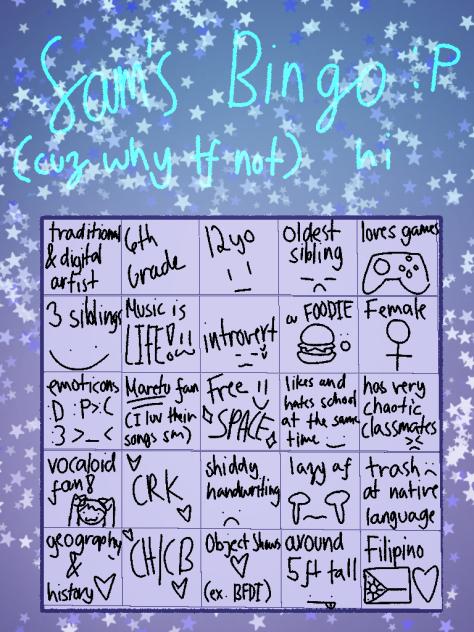 Sam's Bingo :P
(cuz why tf not) hi
traditional
& digital
artist
6th
Grade
12yo
oldest
sibling
loves games
3 siblings
Music is
LIFE!!
introvert
a FOODIE
Female
emoticons
:D :P >:(
:3 >_<
Maretu fan
(I luv their
songs sm)
Free !!
SPACE
likes and
hates school
at the same
time
has very
chaotic
classmates
vocaloid
fan!
CRK
shiddy
handwriting
lazy af
trash
at native
language
geography
&
history
CH/CB
Object Shows
(ex. BFDI)
around
5ft tall
Filipino